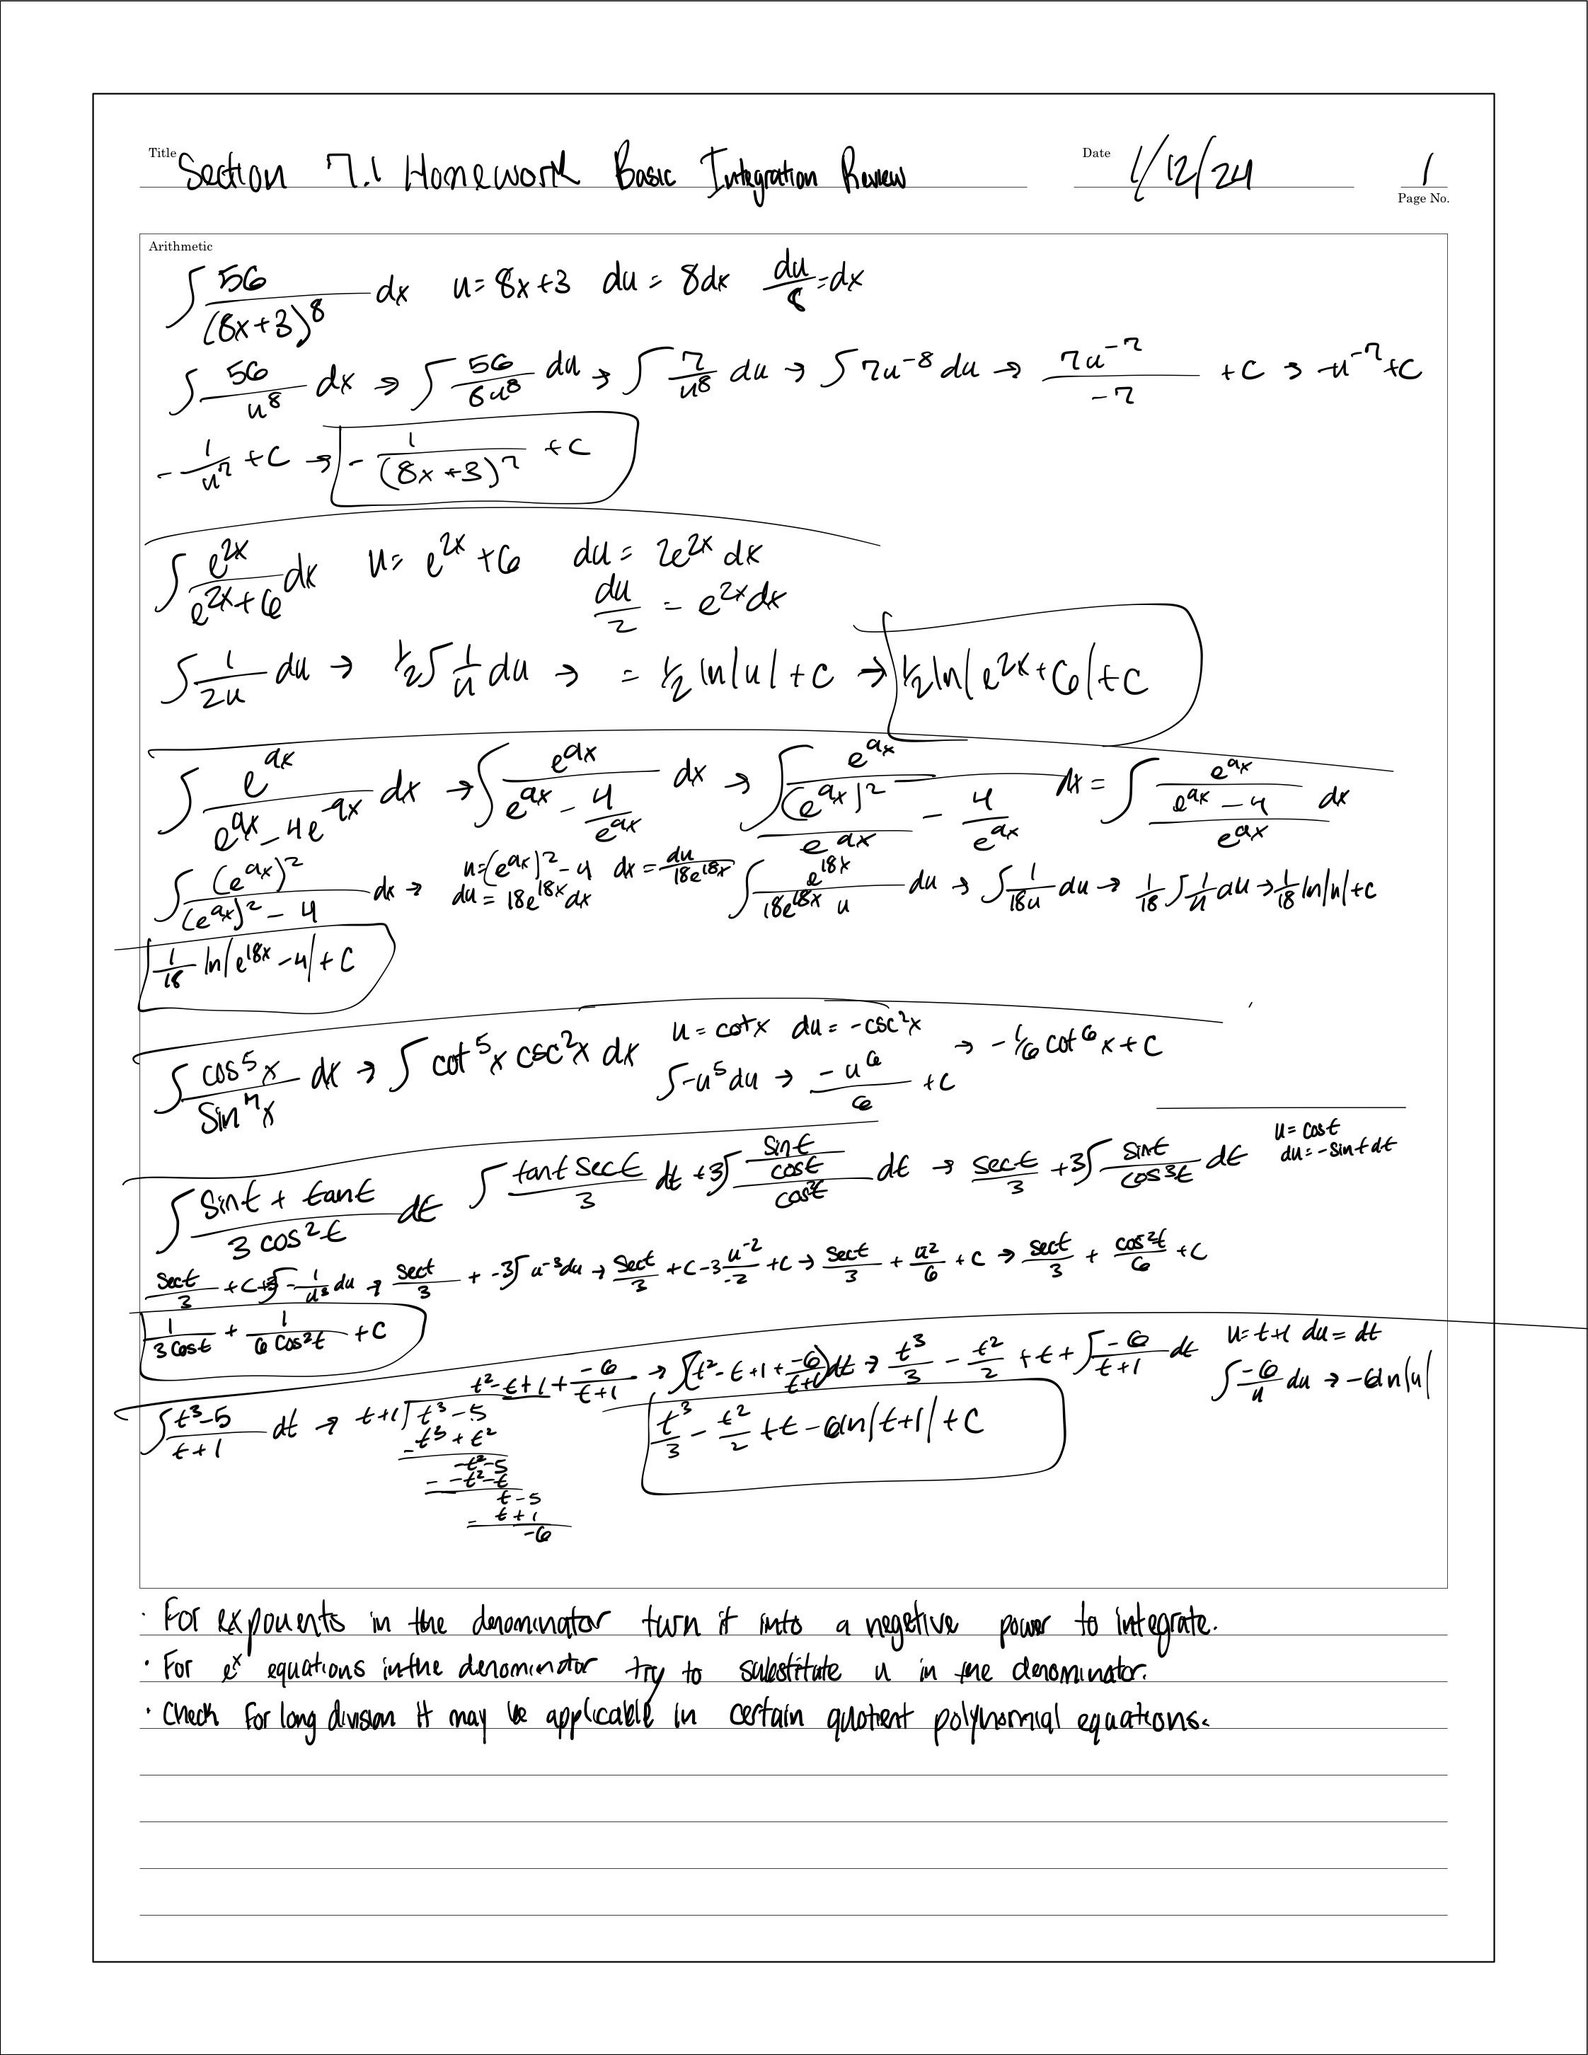 Title Section 7.1 Homework Basic Integration Review Date 1/12/24 1 Page No.
Arithmetic
∫ 56/(8x+3)^8 dx u= 8x+3 du = 8dx du/8 = dx
∫ 56/u^8 dx → ∫ 56/8u^8 du → ∫ 7/u^8 du → ∫ 7u^-8 du → 7u^-7/-7 + C → -u^-7 + C
- 1/u^7 + C → - 1/(8x+3)^7 + C
∫ e^2x/(e^2x+6) dx u= e^2x +6 du = 2e^2x dx
du/2 = e^2x dx
∫ 1/2u du → 1/2 ∫ 1/u du → = 1/2 ln|u| + C → 1/2 ln|e^2x+6| + C
∫ e^9x/(e^9x - 4e^-9x) dx → ∫ e^9x/(e^9x - 4/e^9x) dx → ∫ e^9x/((e^9x)^2/e^9x - 4/e^9x) dx = ∫ e^9x/((e^9x - 4)/e^9x) dx
∫ (e^9x)^2/((e^9x)^2 - 4) dx → u=(e^9x)^2 - 4 dx = du/18e^18x ∫ e^18x/(18e^18x u) du → ∫ 1/18u du → 1/18 ∫ 1/u du → 1/18 ln|u| + C
du = 18e^18x dx
1/18 ln|e^18x - 4| + C
∫ cos^5 x/sin^7 x dx → ∫ cot^5 x csc^2 x dx u = cot x du = -csc^2 x
∫ -u^5 du → -u^6/6 + C → -1/6 cot^6 x + C
∫ (sin t + tan t)/(3 cos^2 t) dt ∫ tan t sec t/3 dt + 3∫ (sin t/cos t)/cos^2 t dt → sec t/3 + 3∫ sin t/cos^3 t dt u = cos t
du = -sin t dt
sec t/3 + C + 3∫ - 1/u^3 du → sec t/3 + -3∫ u^-3 du → sec t/3 + C - 3 u^-2/-2 + C → sec t/3 + u^2/6 + C → sec t/3 + cos^2 t/6 + C
1/(3 cos t) + 1/(6 cos^2 t) + C
∫ (t^3 - 5)/(t+1) dt → t^2 - t + 1 + -6/(t+1) → ∫ (t^2 - t + 1 + -6/(t+1)) dt → t^3/3 - t^2/2 + t + ∫ -6/(t+1) dt u = t+1 du = dt
t+1 ) t^3 - 5 ∫ -6/u du → -6 ln|u|
- t^3 + t^2 t^3/3 - t^2/2 + t - 6 ln|t+1| + C
-t^2 - 5
- -t^2 - t
t - 5
- t + 1
-6
· For exponents in the denominator turn it into a negetive power to integrate.
· For e^x equations in the denominator try to substitute u in the denominator.
· Check for long division it may be applicable in certain quotient polynomial equations.